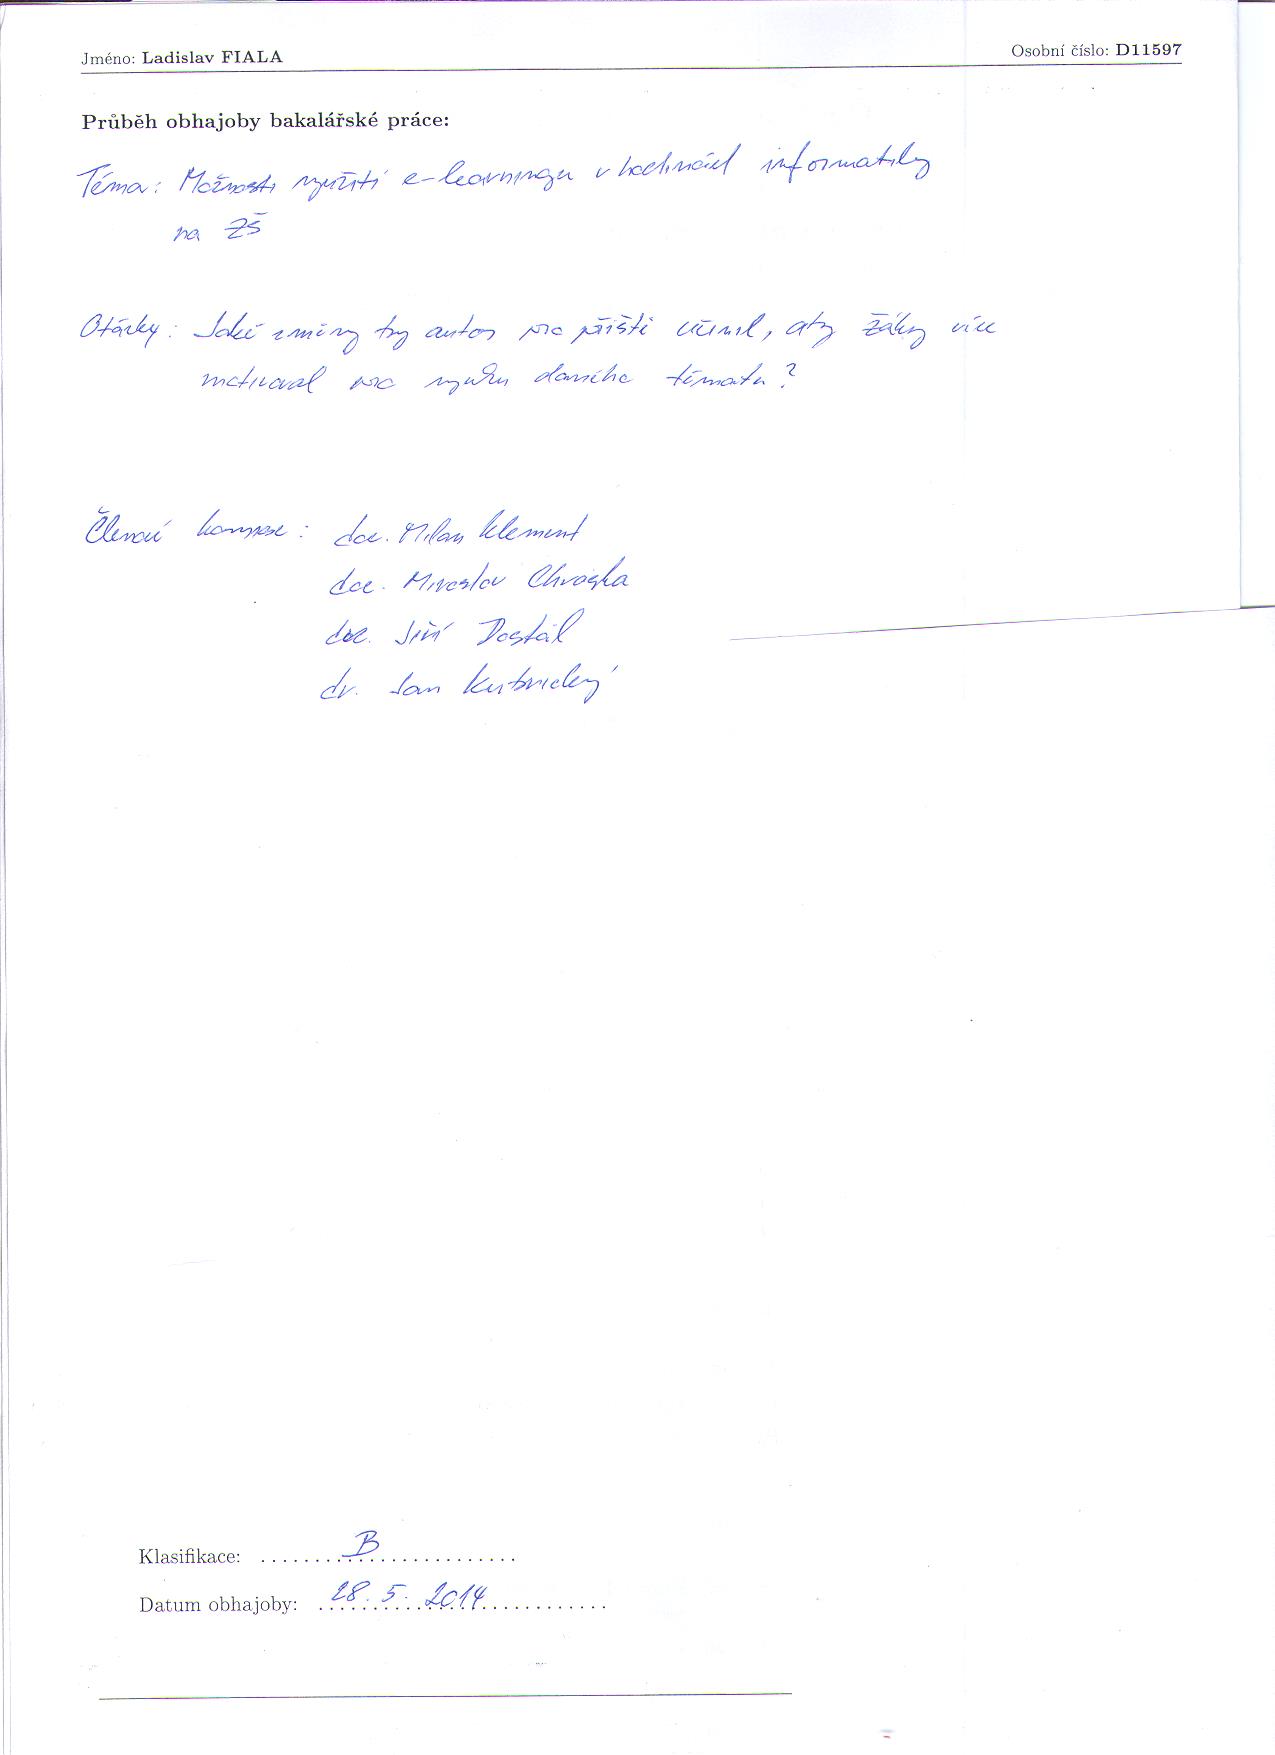 Jméno: Ladislav FIALA Osobní číslo: D11597
Průběh obhajoby bakalářské práce:
Téma: Možnosti využití e-learningu v hodinách informatiky
na ZŠ
Otázky: Jaké změny by autor pro příště učinil, aby žáky více
motivoval pro výuku daného tématu?
Členové komise: doc. Milan Klement
doc. Miroslav Chráska
doc. Jiří Dostál
dr. Jan Kubrický
Klasifikace: B
Datum obhajoby: 28. 5. 2014